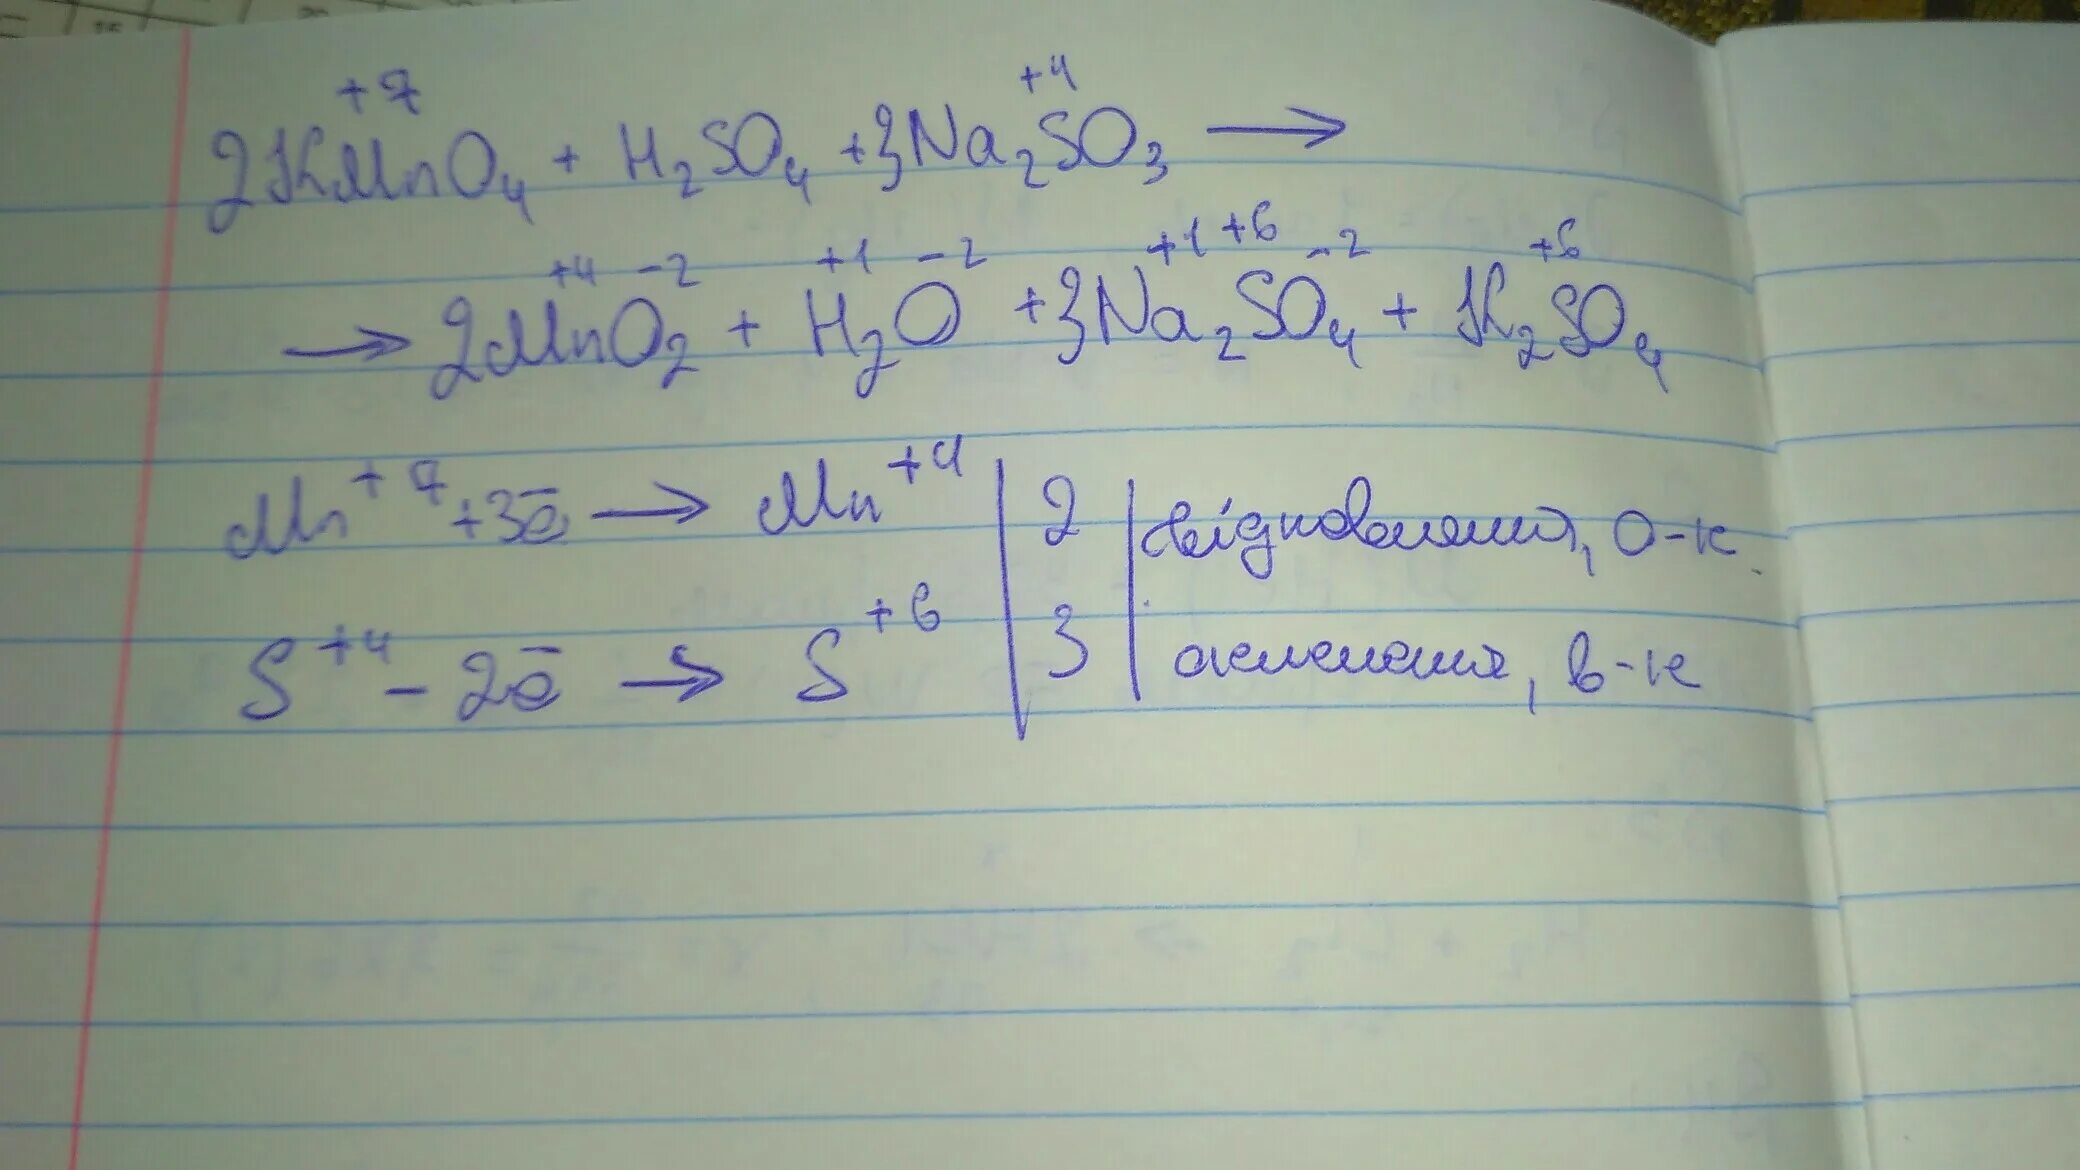 2KMnO₄ + H₂SO₄ + 3Na₂SO₃ →
→ 2MnO₂ + H₂O + 3Na₂SO₄ + K₂SO₄
Mn⁺⁷ + 3ē → Mn⁺⁴ | 2 | відновлення, о-к.
S⁺⁴ - 2ē → S⁺⁶ | 3 | окиснення, в-к